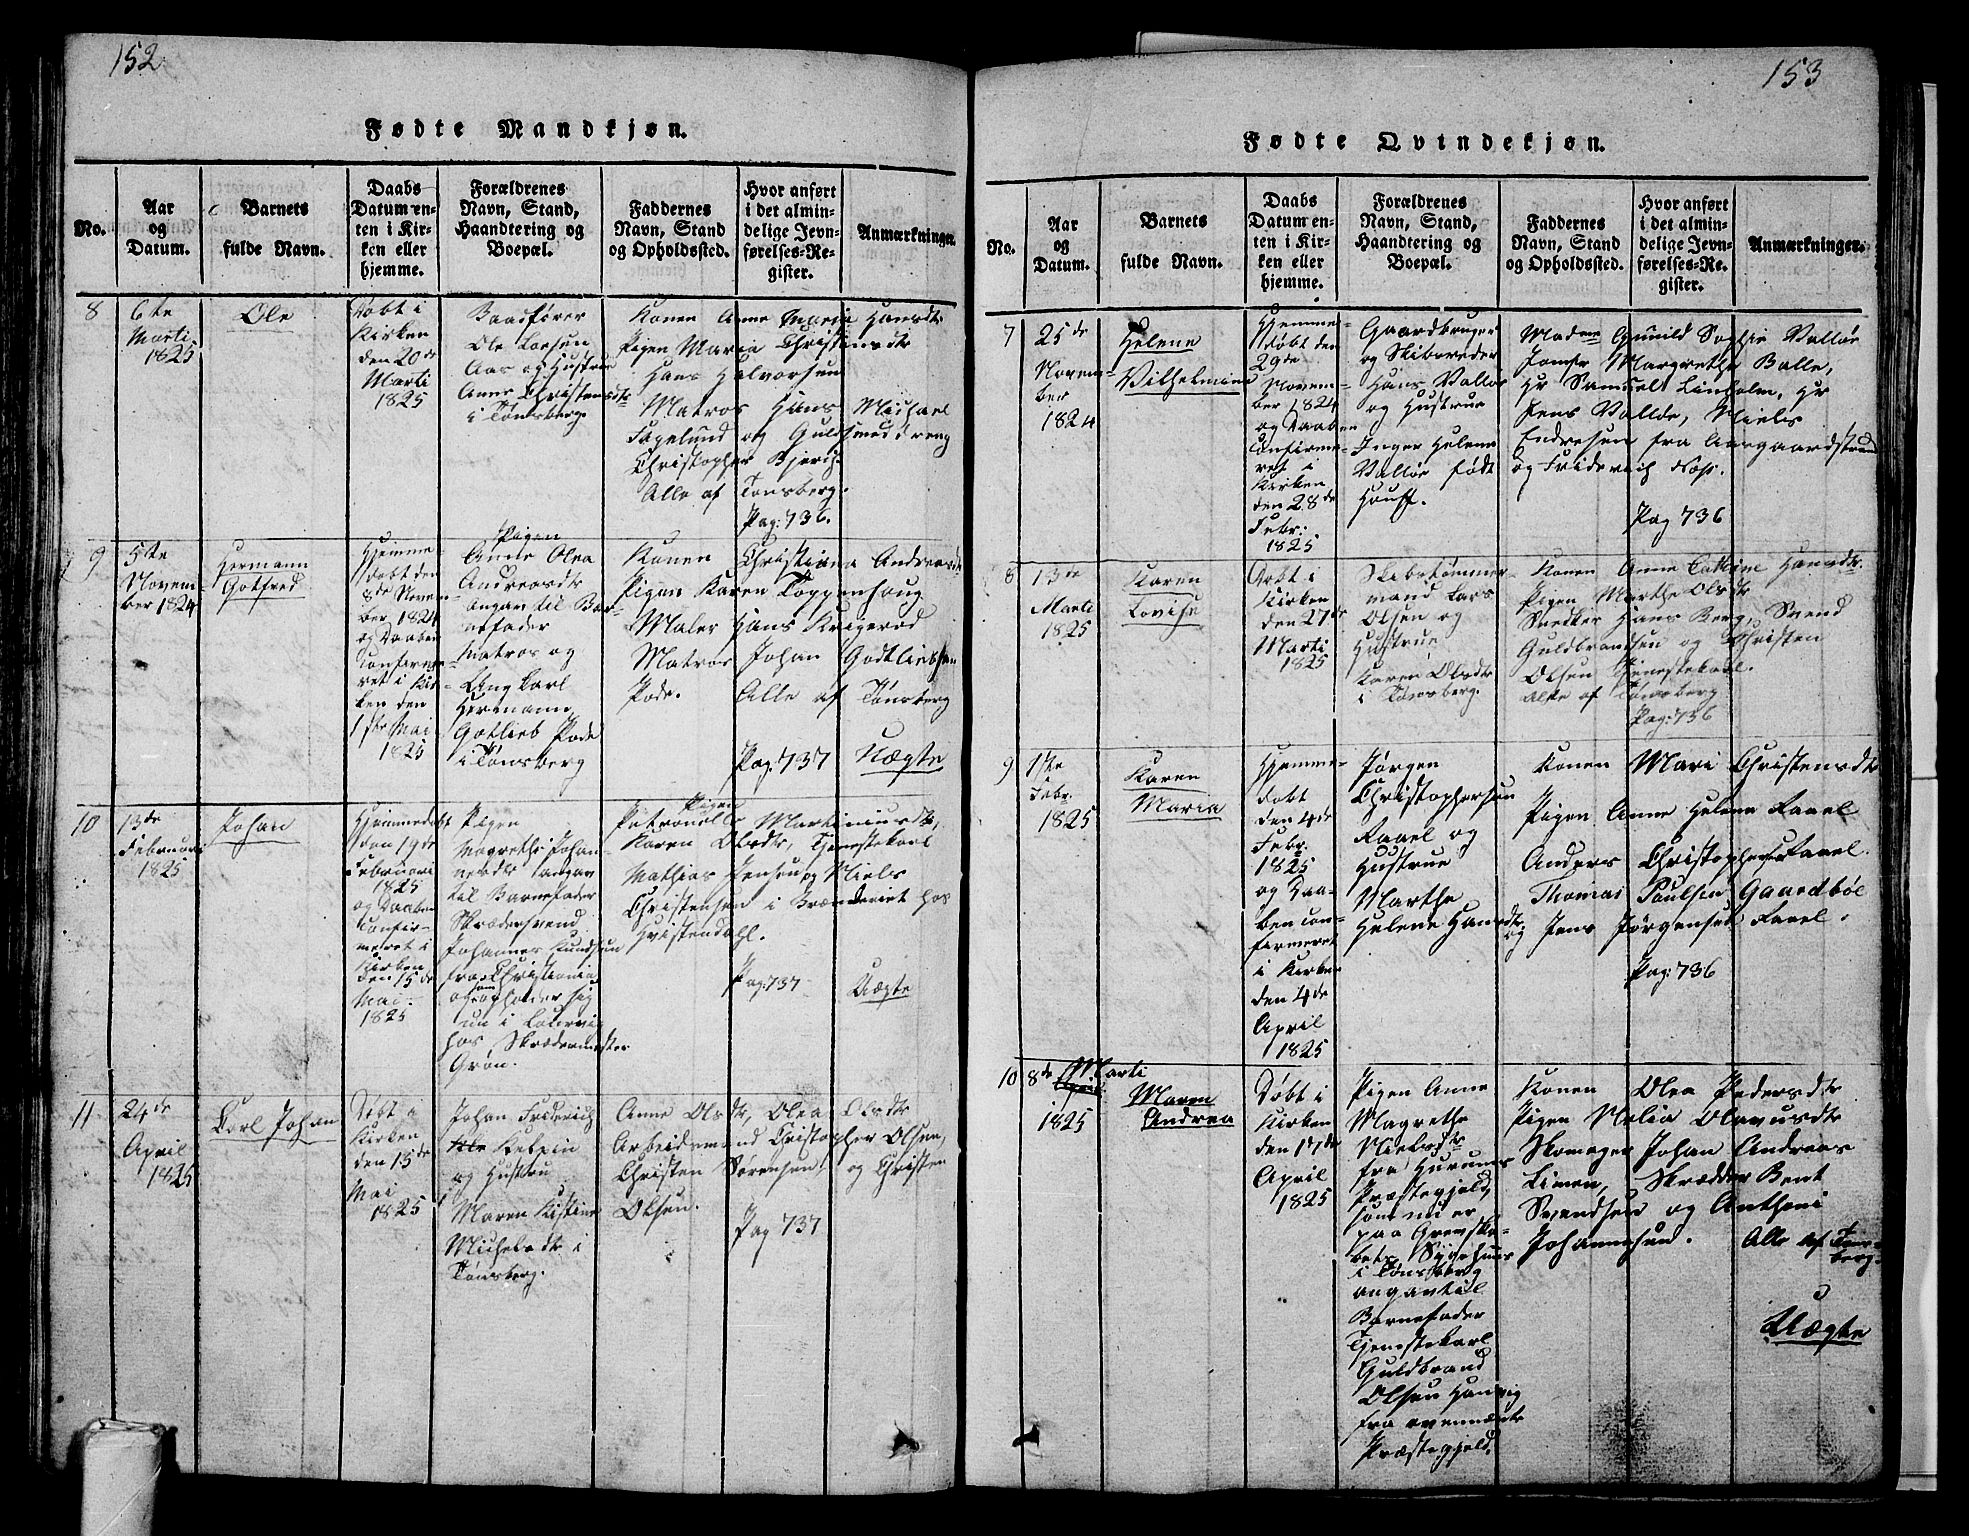 152
Fødte Mandkjøn.
No.
Aar
og
Datum.
Barnets
fulde Navn.
Daabs
Datum en-
ten i Kir-
ken eller
hjemme.
Forældrenes
Navn, Stand,
Haandtering og
Boepæl.
Faddernes
Navn, Stand
og Opholdssted.
Hvor anført
i det almin-
delige Jevn-
førelses-Re-
gister.
Anmærkninger.
8
6te
Marti
1825
Ole
Døbt i
Kirken
den 20de
Marti
1825
Baadfører
Ole Larsen
Aas og Hustrue
Anne Christensdtr
i Tønsberg.
Konen Anne Maria Hansdtr
Pigen Maria Christensdtr
Hans Halvorsen
Matros Hans Michael
Fagelund og Guldsmed
Christopher Bjerch.
Alle af Tønsberg.
Pag: 736.
9
5te
Novem-
ber 1824
Hermann
Gotfred
Hjemme-
døbt den
8de Novem-
ber 1824
og Daaben
Confirme-
ret i Kir-
ken den
1ste Mai
1825
Pigen
Anne Olea
Andreasdtr
angav til Bar-
nefader
Matros og
Ung karl
Hermann
Gotlieb Pode
i Tønsberg
Konen Christiana Andreasdtr
Pigen Karen Toppenhoug
Maler Hans Krigerød
Matros Johan Godtliebsen
Pode. Alle af Tønsberg
Pag: 737 Uægte
10
13de
Februari
1825
Johan
Hjemmedøbt
den 19de
Februari
1825
og Daaben
Confir-
meret i
Kirken
den 15de
Mai
1825
Pigen
Magrethe Johan-
nesdtr angav
til Barnefader
Skrædersvend
Johannes Knudsen
fra Christiania
og som opholder sig
nu i Laurvig
hos Skrædermester
Grøn.
Pigen
Petronelle Martiniusdtr,
Karen Olsdtr, Tjenestekarl
Mathias Jensen og Niels
Christensen i Brænderiet hos
Hvistendahl.
Pag: 737 Uægte
11
24de
April
1825
Carl Johan
Døbt i
Kirken
den 15de
Mai
1825
Johan Friderich
Kelpin
og Hustru
Maren Kistine
Michelsdtr i
Tønsberg.
Anne Olsdtr, Olea Olsdtr
Arbeidsmend Cristopher Olsen,
Christen Sørensen og Cristen
Olsen.
Pag 737
153
Fødte Qvindekjøn.
No.
Aar
og
Datum.
Barnets
fulde Navn.
Daabs
Datum en-
ten i Kir-
ken eller
hjemme.
Forældrenes
Navn, Stand,
Haandtering og
Boepæl.
Faddernes
Navn, Stand
og Opholdssted.
Hvor anført
i det almin-
delige Jevn-
førelses-Re-
gister.
Anmærkninger.
7
25de
Novem-
ber
1824
Helene
Vilhelmine
Hjemme-
døbt den
29de
Novem-
ber 1824
og Daaben
Confirme-
ret i
Kirken
den 28de
Febr:
1825
Gaardbruger
og Skibsreder
Hans Valløe
og Hustrue
Inger Helene
Valløe født
Houff.
Madme Gunild Sophie Valløe
Jomfr Margrethe Balle,
Hr Samuel Linholm, Hr
Jens Balle, Niels
Endresen fra Aasgaardstrand
og Friderich
Pag 736
8
13de
Marti
1825
Karen
Lovise
Døbt i
Kirken
den 27de
Marti
1825
Skibstømmer-
mand Lars
Olsen og
Hustrue
Karen Olsdtr
i Tønsberg.
Konen Anne Cathrine Hansdtr.
Pigen Marthe Olsdtr
Snedker Hans Berg, Svend
Guldbrandsen og Christen
Olsen Tjenestekarl.
Alle af Tønsberg
Pag: 736
9
1ste
Febr.
1825
Karen
Maria
Hjemme-
døbt
den 4de
Febr.
1825
og Daa-
ben Con-
firmeret
i Kirken
den 4de
April
1825
Jørgen
Christophersen
Raael og
Hustrue
Marthe
Helene Hansdtr
Konen Mari Christensdtr
Pigen Anne Helene Raael
Anders Christophersen Raael.
Thomas Paulsen Gaardbøe
og Jens Jørgensen Raael.
Pag: 736
10
8de Marti
April
1825
Maren
Andrea
Døbt i
Kirken
den 17de
April
1825
Pigen Anne
Magrethe
Nielsdtr
fra Hurums
Præstegjeld,
som nu er
paa Grevska-
bets Sygehuus
i Tønsberg
angav til
Barnefader
Tjenestekarl
Guldbrand
Olsen
fra ovennævnte
Præstegjeld.
Konen Olea Pedersdtr
Pigen Malia Olavusdtr
Skomager Johan Andreas
Limen, Skrædder Bent
Svendsen og Anthoni
Johannesen. Alle af Tøns-
berg.
Uægte